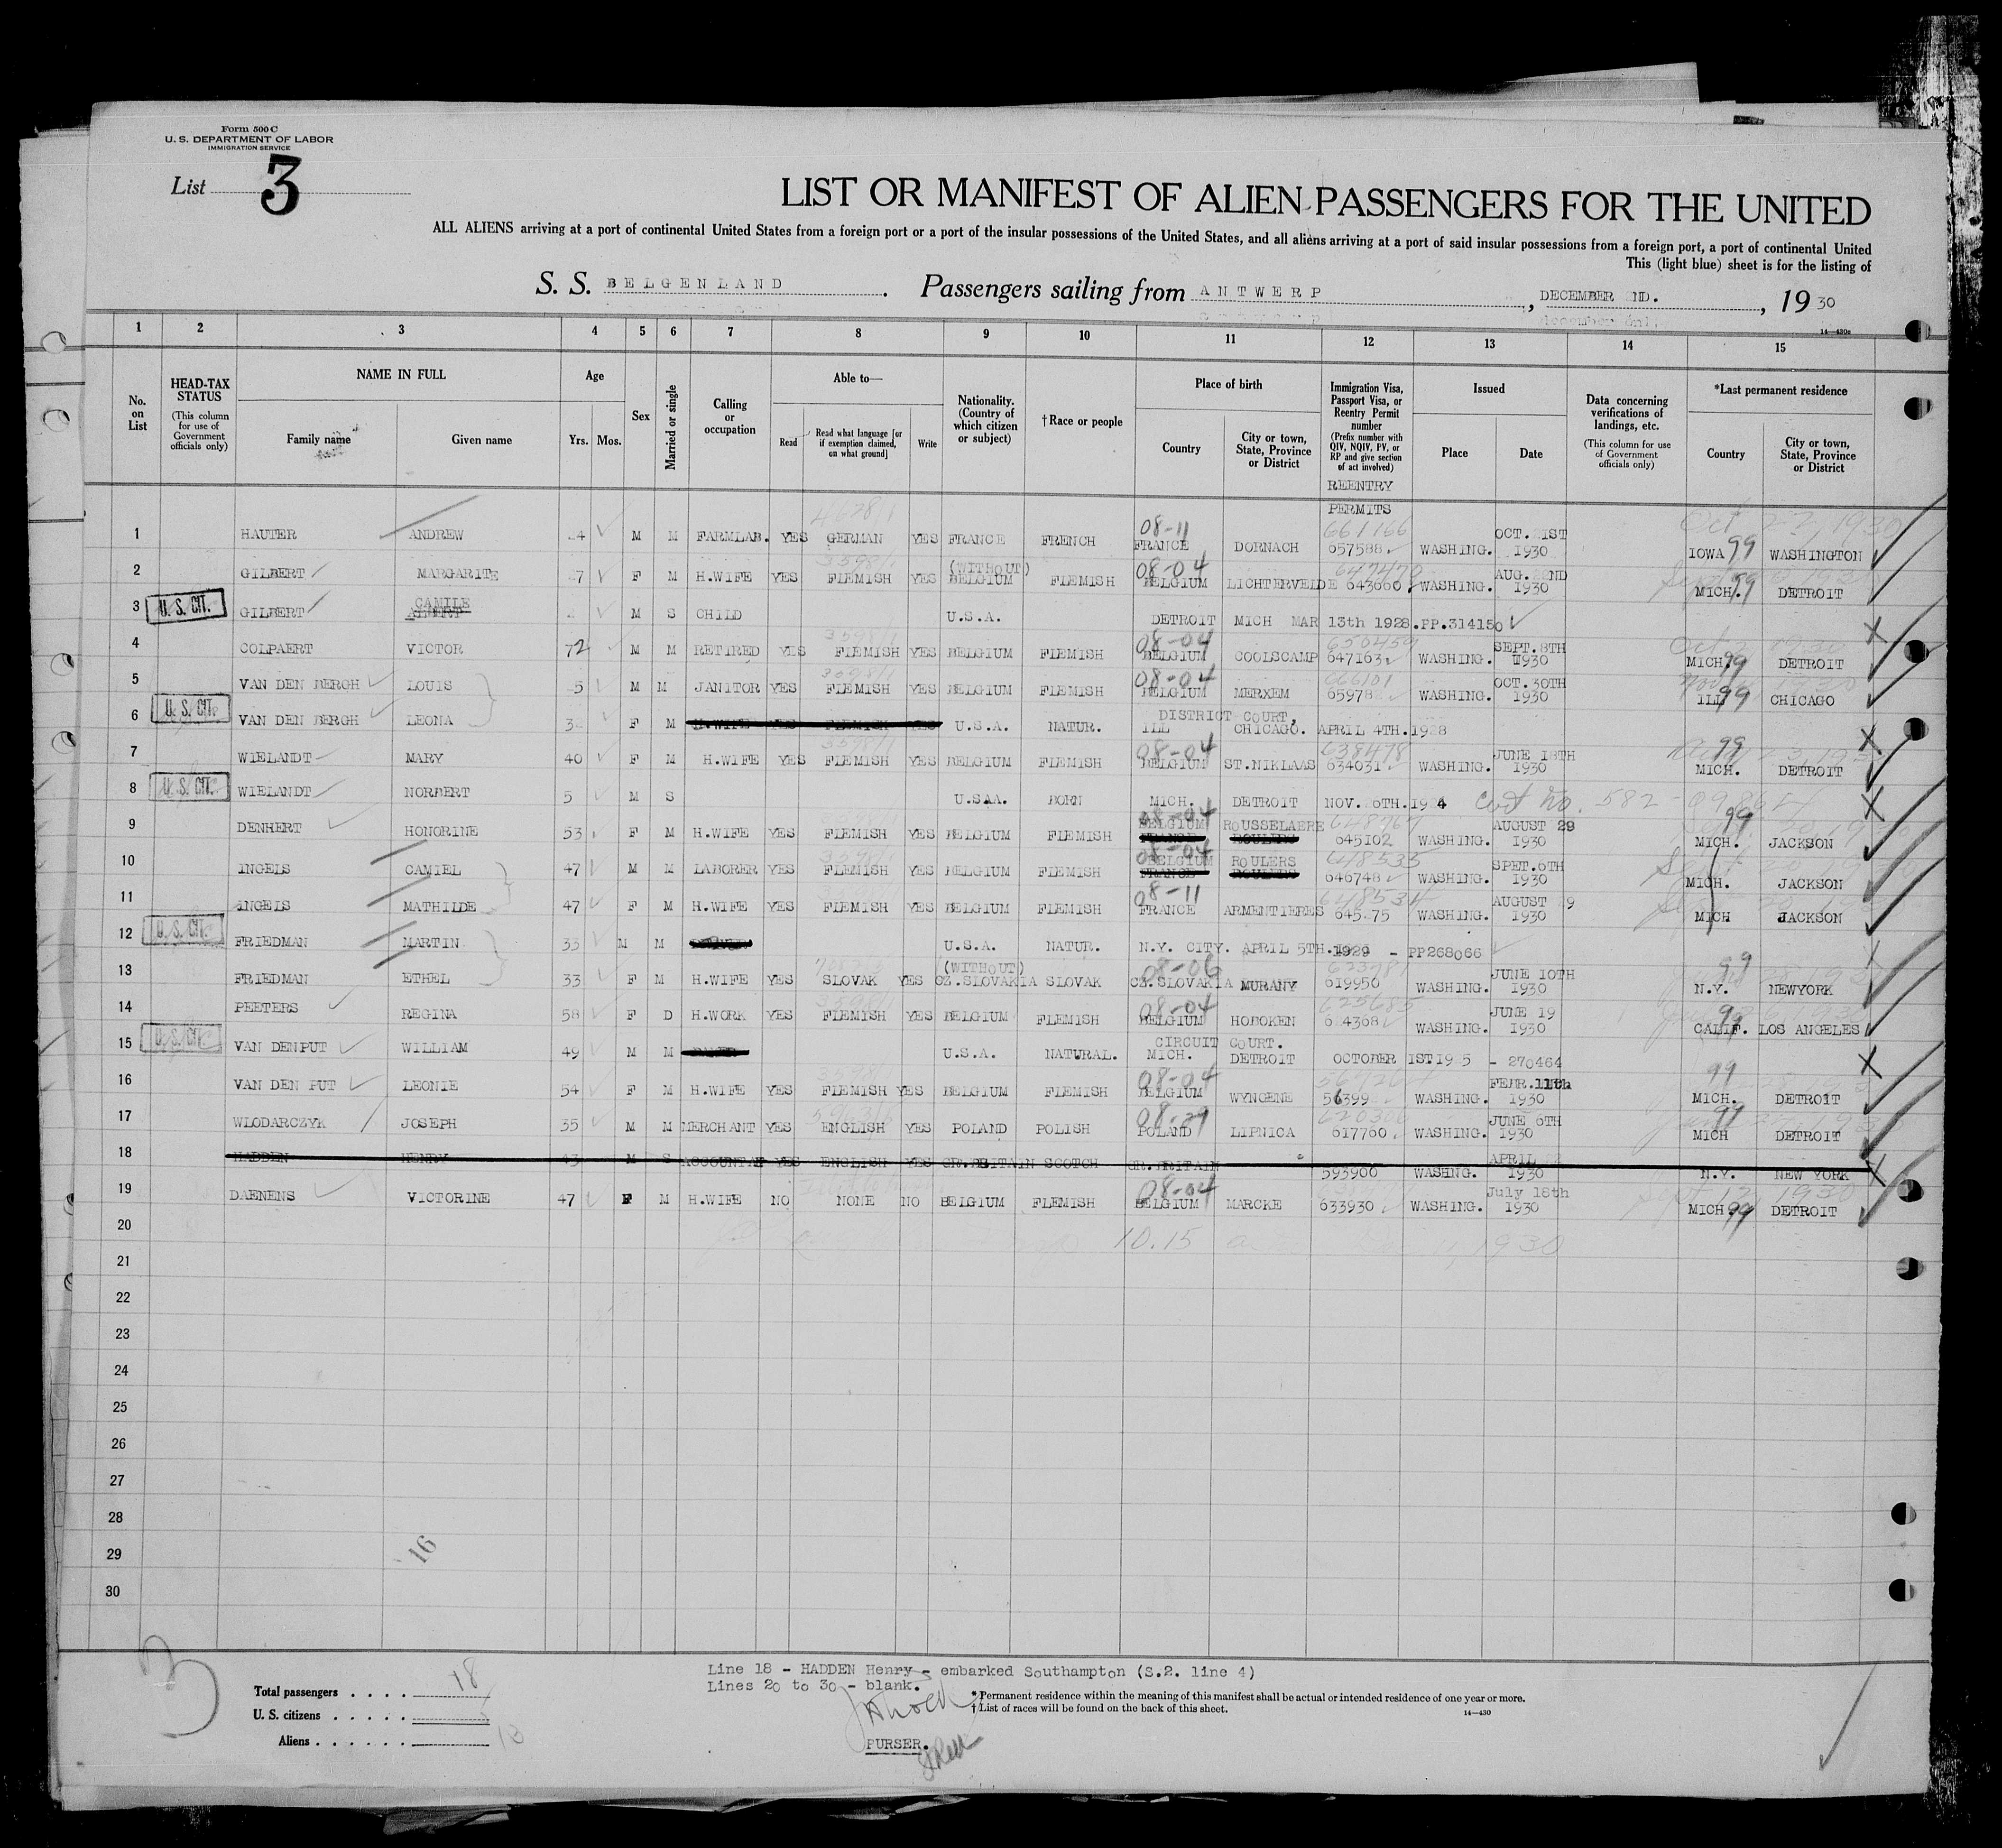 Form 500 C
U. S. DEPARTMENT OF LABOR
IMMIGRATION SERVICE
List 3
LIST OR MANIFEST OF ALIEN PASSENGERS FOR THE UNITED
ALL ALIENS arriving at a port of continental United States from a foreign port or a port of the insular possessions of the United States, and all aliens arriving at a port of said insular possessions from a foreign port, a port of continental United
This (light blue) sheet is for the listing of
S. S. BELGENLAND. Passengers sailing from ANTWERP, DECEMBER ND., 19 30
14—430c
1 2 3 4 5 6 7 8 9 10 11 12 13 14 15
No. on List
HEAD-TAX STATUS (This column for use of Government officials only)
NAME IN FULL Family name Given name
Age Yrs. Mos.
Sex
Married or single
Calling or occupation
Able to— Read Read what language [or if exemption claimed, on what ground] Write
Nationality. (Country of which citizen or subject)
†Race or people
Place of birth Country City or town, State, Province or District
Immigration Visa, Passport Visa, or Reentry Permit number (Prefix number with QIV, NQIV, PV, or RP and give section of act involved)
Issued Place Date
Data concerning verifications of landings, etc. (This column for use of Government officials only)
*Last permanent residence Country City or town, State, Province or District
REENTRY PERMITS
1 HAUTER ANDREW 4 M M FARMLAB. YES GERMAN YES FRANCE FRENCH 08-11 FRANCE DORNACH 661166 657588 WASHING. OCT. 21ST 1930 IOWA 99 WASHINGTON
2 GILBERT MARGARITE 7 F M H.WIFE YES FLEMISH YES (WITHOUT) BELGIUM FLEMISH 08-04 BELGIUM LICHTERVELDE 647470 643660 WASHING. AUG. 22ND 1930 MICH. 99 DETROIT
3 U. S. CIT. GILBERT CAMILE ALBERT M S CHILD U.S.A. DETROIT MICH MAR 13th 1928.PP.314150
4 COLPAERT VICTOR 72 M M RETIRED YES FLEMISH YES BELGIUM FLEMISH 08-04 BELGIUM COOLSCAMP 650459 647163 WASHING. SEPT.8TH 1930 MICH. 99 DETROIT
5 VAN DEN BERGH LOUIS 5 M M JANITOR YES FLEMISH YES BELGIUM FLEMISH 08-04 BELGIUM MERXEM 666101 65978 WASHING. OCT. 30TH 1930 ILL 99 CHICAGO
6 U. S. CIT. VAN DEN BERGH LEONA 3 F M H.WIFE YES FLEMISH YES U.S.A. NATUR. DISTRICT COURT, ILL CHICAGO. APRIL 4TH.1928
7 WIELANDT MARY 40 F M H.WIFE YES FLEMISH YES BELGIUM FLEMISH 08-04 BELGIUM ST.NIKLAAS 638478 634031 WASHING. JUNE 18TH 1930 99 MICH. DETROIT
8 U. S. CIT. WIELANDT NORBERT 5 M S U.S.A. BORN MICH. DETROIT NOV. 6TH.19 4 Cert No. 582-
9 DENHERT HONORINE 53 F M H.WIFE YES FLEMISH YES BELGIUM FLEMISH 08-04 BELGIUM ROUSSELAERE FRANCE ROULERS 645102 WASHING. AUGUST 29 1930 99 MICH. JACKSON
10 INGELS CAMIEL 47 M M LABORER YES FLEMISH YES BELGIUM FLEMISH 08-04 BELGIUM ROULERS FRANCE ROULERS 648535 646748 WASHING. SPET.6TH 1930 MICH. JACKSON
11 INGELS MATHILDE 47 F M H.WIFE YES FLEMISH YES BELGIUM FLEMISH 08-11 FRANCE ARMENTIERES 648534 645 75 WASHING. AUGUST 29 1930 MICH JACKSON
12 U. S. CIT. FRIEDMAN MARTIN 35 M M U.S.A. NATUR. N.Y. CITY. APRIL 5TH.1929 - PP268066
13 FRIEDMAN ETHEL 33 F M H.WIFE YES SLOVAK YES (WITHOUT) CZ.SLOVAKIA SLOVAK 08-06 CZ.SLOVAKIA MURANY 619950 WASHING. JUNE 10TH 1930 99 N.Y. NEWYORK
14 PEETERS REGINA 58 F D H.WORK YES FLEMISH YES BELGIUM FLEMISH 08-04 BELGIUM HOBOKEN 625685 6 4368 WASHING. JUNE 19 1930 99 CALIF. LOS ANGELES
15 U. S. CIT. VAN DENPUT WILLIAM 49 M M U.S.A. NATURAL. CIRCUIT COURT. MICH. DETROIT OCTOBER 1ST19 5 - 270464
16 VAN DEN PUT LEONIE 54 F M H.WIFE YES FLEMISH YES BELGIUM FLEMISH 08-04 BELGIUM WYNGENE 56399 WASHING. FEBR.11th 1930 99 MICH. DETROIT
17 WLODARCZYK JOSEPH 35 M M MERCHANT YES ENGLISH YES POLAND POLISH 08-29 POLAND LIPNICA 617760 WASHING. JUNE 6TH 1930 99 MICH DETROIT
18 HADDEN HENRY 43 M S ACCOUNTAT YES ENGLISH YES GR.BRITAIN SCOTCH GR.BRITAIN 593900 WASHNG. APRIL 1930 N.Y. NEW YORK
19 DAENENS VICTORINE 47 F M H.WIFE NO NONE NO BELGIUM FLEMISH 08-04 BELGIUM MARCKE 633930 WASHING. July 18th 1930 MICH 99 DETROIT
20 10.15 1930
21
22
23
24
25
26
27
28
29 16
30
3
Line 18 - HADDEN Henry - embarked Southampton (S.2. line 4)
Lines 20 to 30 - blank.
Total passengers 18
U. S. citizens
Aliens 13
* Permanent residence within the meaning of this manifest shall be actual or intended residence of one year or more.
† List of races will be found on the back of this sheet.
14—430
PURSER.